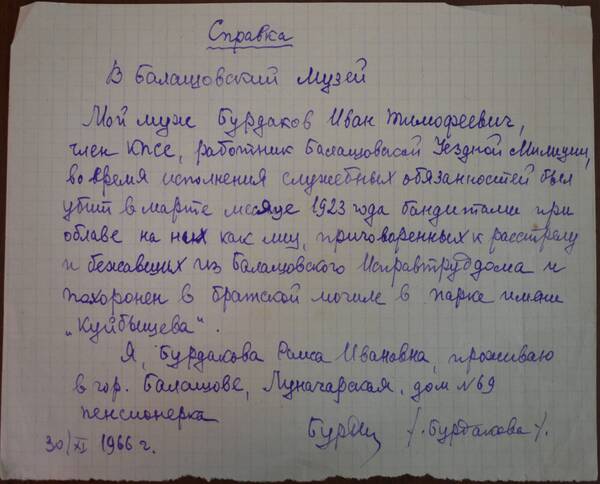 Справка
В Балашовский Музей
Мой муж Бурдаков Иван Тимофеевич,
член КПСС, работник Балашовской Уездной Милиции,
во время исполнения служебных обязанностей был
убит в марте месяце 1923 года бандитами при
облаве на них как лиц, приговоренных к расстрелу
и бежавших из Балашовского Исправтруддома и
похоронен в братской могиле в парке имени
„Куйбышева".
Я, Бурдакова Раиса Ивановна, проживаю
в гор. Балашове, Луначарская, дом №69
пенсионерка
30/XI 1966 г. /.Бурдакова/.